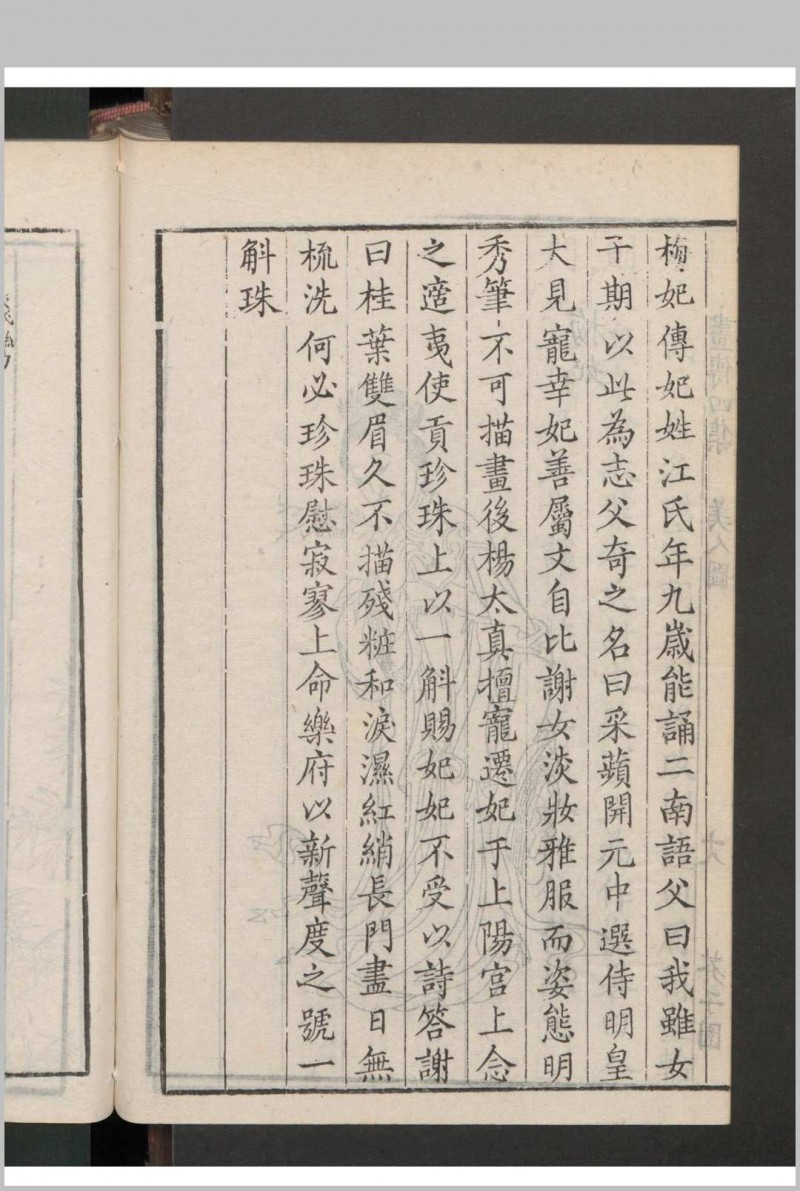 梅妃傳妃姓江氏年九歳能誦二南語父曰我雖女
子期以此為志父奇之名曰采蘋開元中選侍明皇
大見寵幸妃善屬文自比謝女淡妝雅服而姿態明
秀筆不可描畫後楊太真擅寵遷妃于上陽宮上念
之適夷使貢珍珠上以一斛賜妃妃不受以詩答謝
曰桂葉雙眉久不描殘粧和淚濕紅綃長門盡日無
梳洗何必珍珠慰寂寥上命樂府以新聲度之號一
斛珠